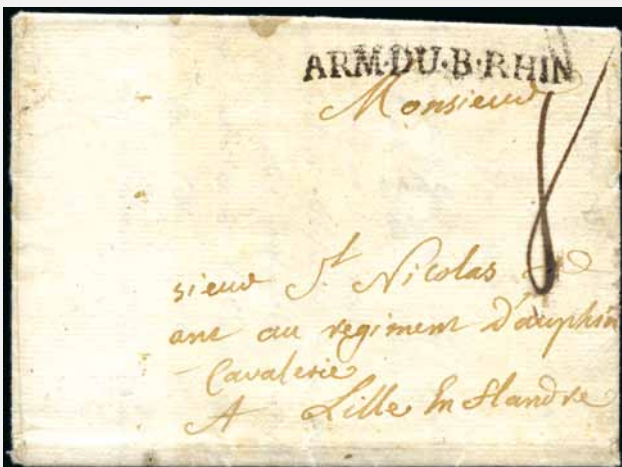 ARM·DU·B·RHIN
Monsieur
8
sieur St Nicolas
ant au regiment Dauphin
Cavalerie
A Lille En flandre